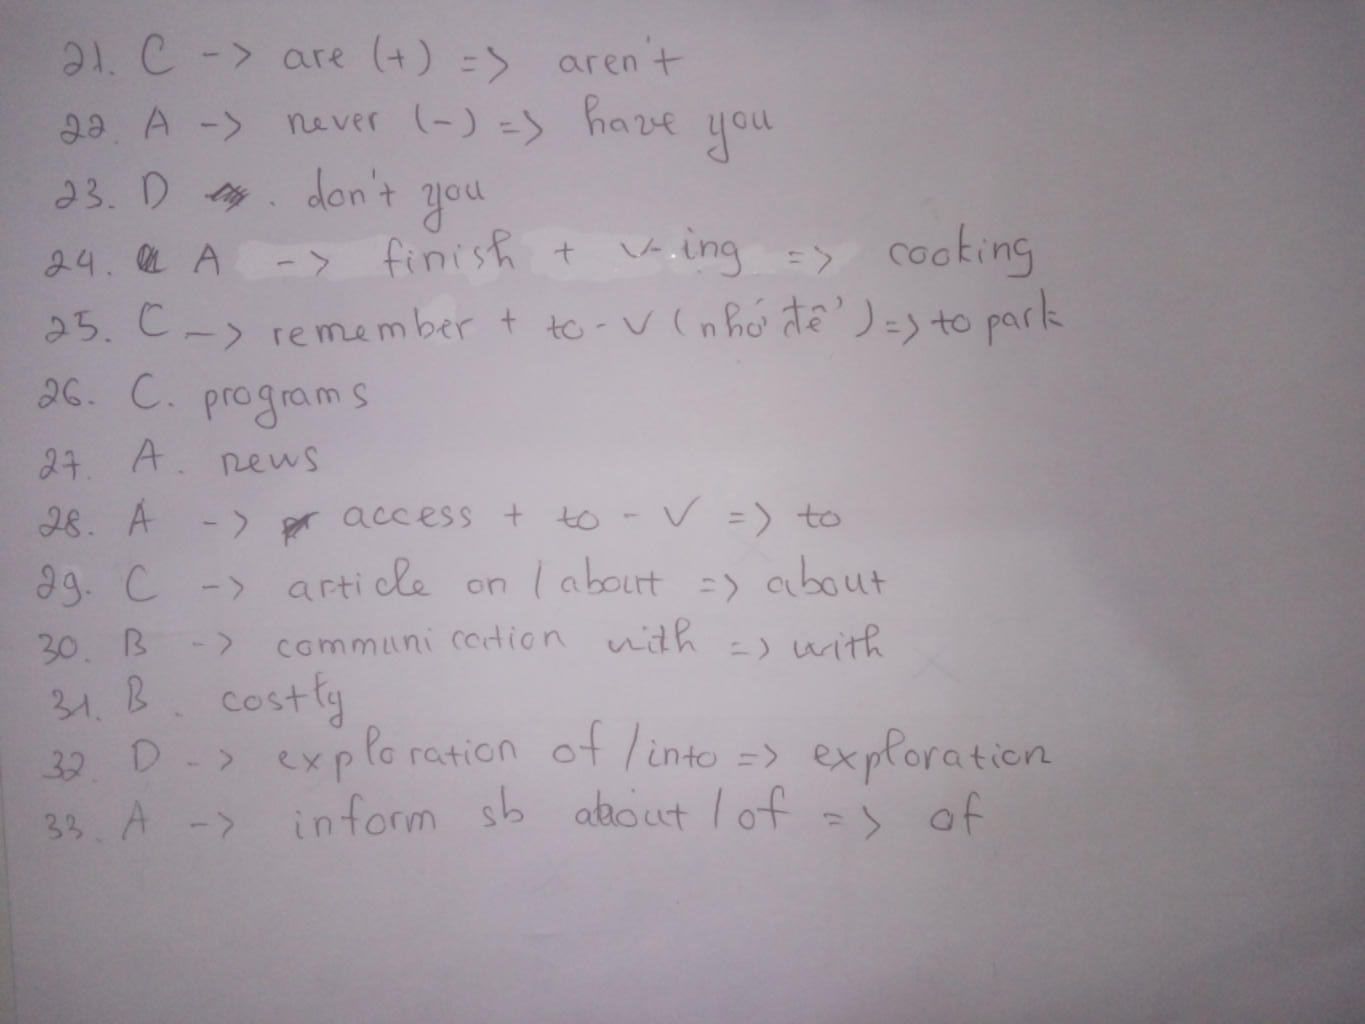 21. C -> are (+) => aren't
22. A -> never (-) => have you
23. D . don't you
24. A -> finish + v-ing => cooking
25. C -> remember + to-v (nhớ để) => to park
26. C. programs
27. A. news
28. A -> access + to - V => to
29. C -> article on / about => about
30. B -> communication with => with
31. B. costly
32. D -> exploration of / into => exploration
33. A -> inform sb about / of => of